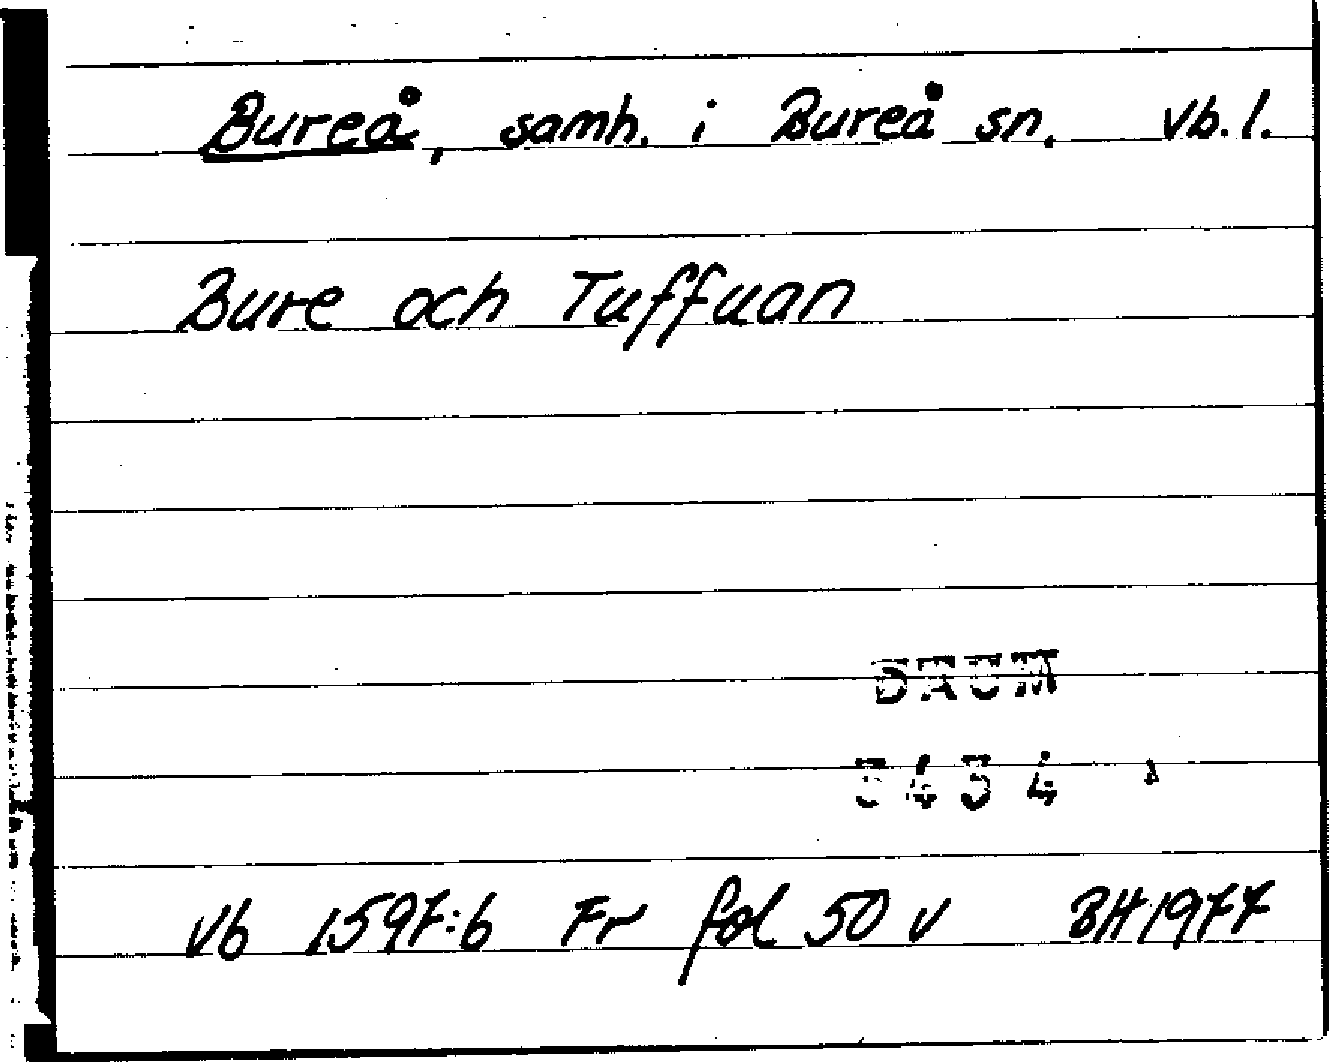 Bureå, samh. i Bureå sn. Vb. l.
Bure och Tuffuan
DAUM
Vb 1597:6 Fr fol 50 v BH 1977